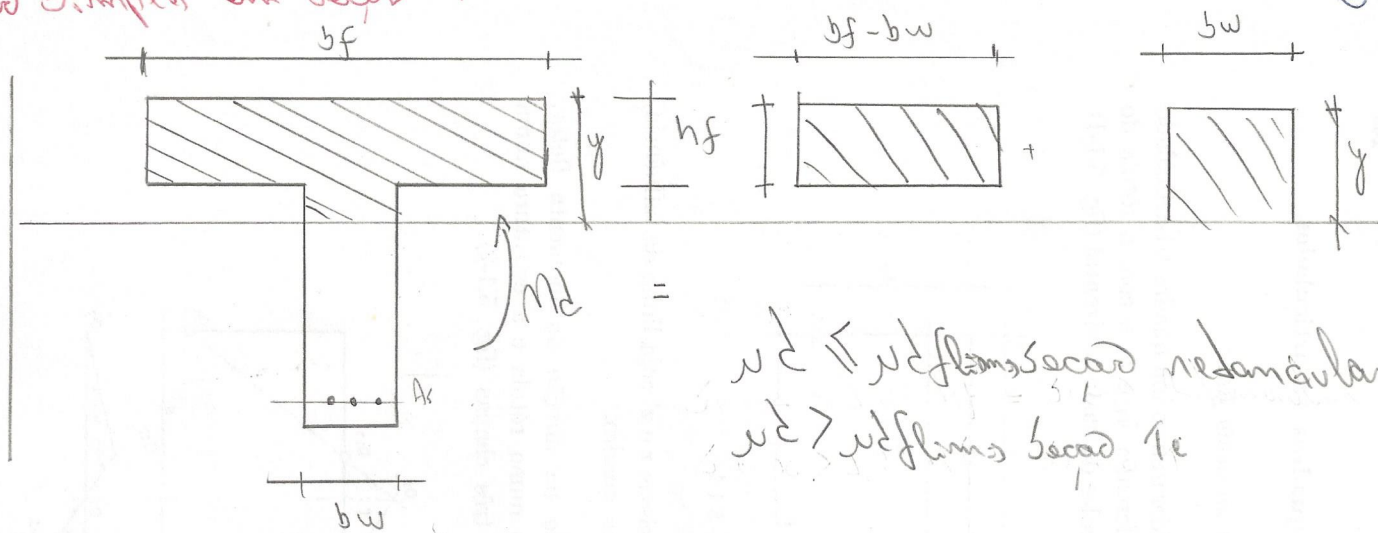 bf
bf - bw
bw
y
hf
+
y
Md
=
As
μd ≤ μdflim → seção retangular
μd > μdflim → seção Tê
bw